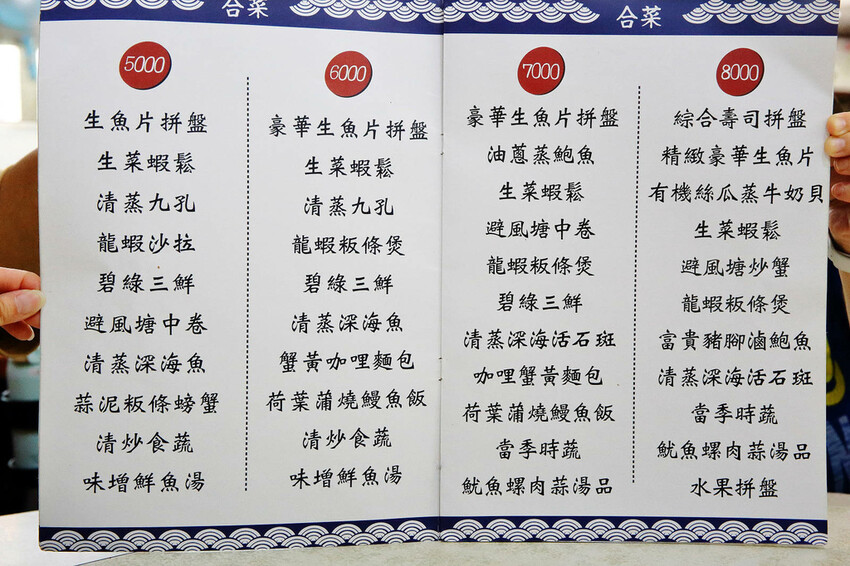 合菜
5000
生魚片拼盤
生菜蝦鬆
清蒸九孔
龍蝦沙拉
碧綠三鮮
避風塘中卷
清蒸深海魚
蒜泥粄條螃蟹
清炒食蔬
味增鮮魚湯
6000
豪華生魚片拼盤
生菜蝦鬆
清蒸九孔
龍蝦粄條煲
碧綠三鮮
清蒸深海魚
蟹黃咖哩麵包
荷葉蒲燒鰻魚飯
清炒食蔬
味增鮮魚湯
合菜
7000
豪華生魚片拼盤
油蔥蒸鮑魚
生菜蝦鬆
避風塘中卷
龍蝦粄條煲
碧綠三鮮
清蒸深海活石斑
咖哩蟹黃麵包
荷葉蒲燒鰻魚飯
當季時蔬
魷魚螺肉蒜湯品
8000
綜合壽司拼盤
精緻豪華生魚片
有機絲瓜蒸牛奶貝
生菜蝦鬆
避風塘炒蟹
龍蝦粄條煲
富貴豬腳滷鮑魚
清蒸深海活石斑
當季時蔬
魷魚螺肉蒜湯品
水果拼盤